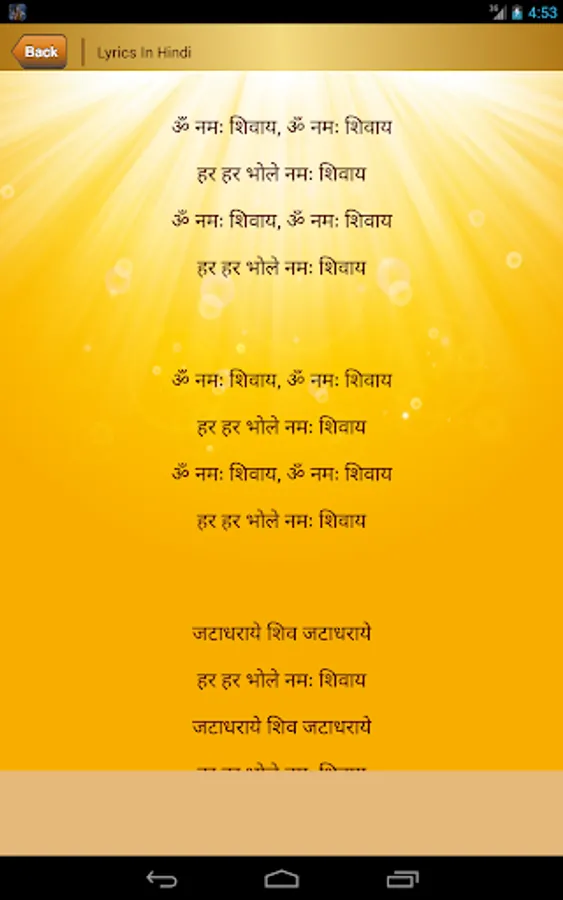 3G 4:53
Back Lyrics In Hindi
ॐ नमः शिवाय, ॐ नमः शिवाय
हर हर भोले नमः शिवाय
ॐ नमः शिवाय, ॐ नमः शिवाय
हर हर भोले नमः शिवाय
ॐ नमः शिवाय, ॐ नमः शिवाय
हर हर भोले नमः शिवाय
ॐ नमः शिवाय, ॐ नमः शिवाय
हर हर भोले नमः शिवाय
जटाधराये शिव जटाधराये
हर हर भोले नमः शिवाय
जटाधराये शिव जटाधराये